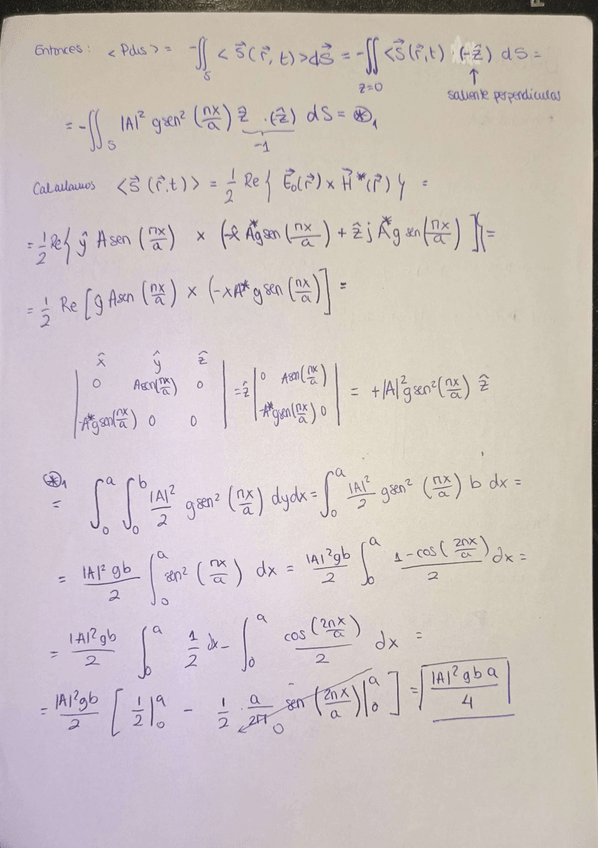 Entonces: < Pdis > = -∬_S < S⃗(r⃗, t) > dS⃗ = -∬_{z=0} < S⃗(r⃗,t) · (-ẑ) dS =
↑ saliente perpendicular
= -∬_S |A|² g sen² (πx/a) ẑ · (ẑ) dS = ⊛₁
-1
Calculamos < S⃗(r⃗,t) > = 1/2 Re { E⃗₀(r⃗) × H⃗*(r⃗) } =
= 1/2 Re { ŷ A sen (πx/a) × (-x̂ A* g sen (πx/a) + ẑ j A* g sen (πx/a) ] } =
= 1/2 Re [ ŷ A sen (πx/a) × (-x A* g sen (πx/a) ] =
x̂ ŷ ẑ
| 0 A sen(πx/a) 0 | = ẑ | 0 A sen(πx/a) | = + |A|² g sen² (πx/a) ẑ
| -A* g sen(πx/a) 0 0 | | -A* g sen(πx/a) 0 |
⊛₁
= ∫₀^a ∫₀^b |A|²/2 g sen² (πx/a) dy dx = ∫₀^a |A|²/2 g sen² (πx/a) b dx =
= |A|² g b/2 ∫₀^a sen² (πx/a) dx = |A|² g b/2 ∫₀^a (1 - cos (2πx/a))/2 dx =
= |A|² g b/2 ∫₀^a 1/2 dx - ∫₀^a cos (2πx/a)/2 dx =
= |A|² g b/2 [ 1/2 |₀^a - 1/2 · a/2π sen (2πx/a) |₀^a ] = |A|² g b a/4
0